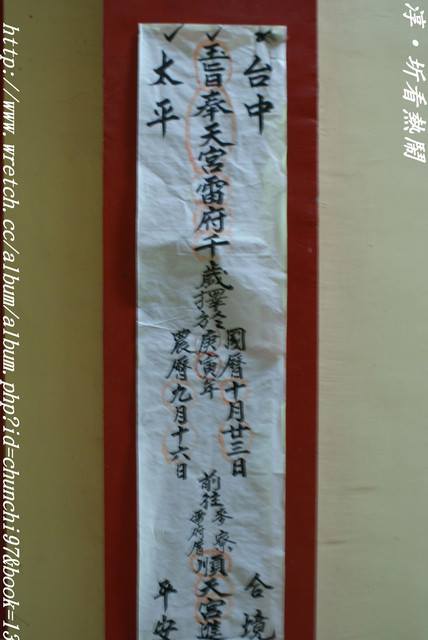 台中
太平
玉旨奉天宮雷府千歲擇於
國曆十月廿三日
庚寅年
農曆九月十六日
前往麥寮
雷府厝
順天宮進
合境
平安
淳·圻看熱鬧
http://www.wretch.cc/album/album.php?id=chunchi97&book=13